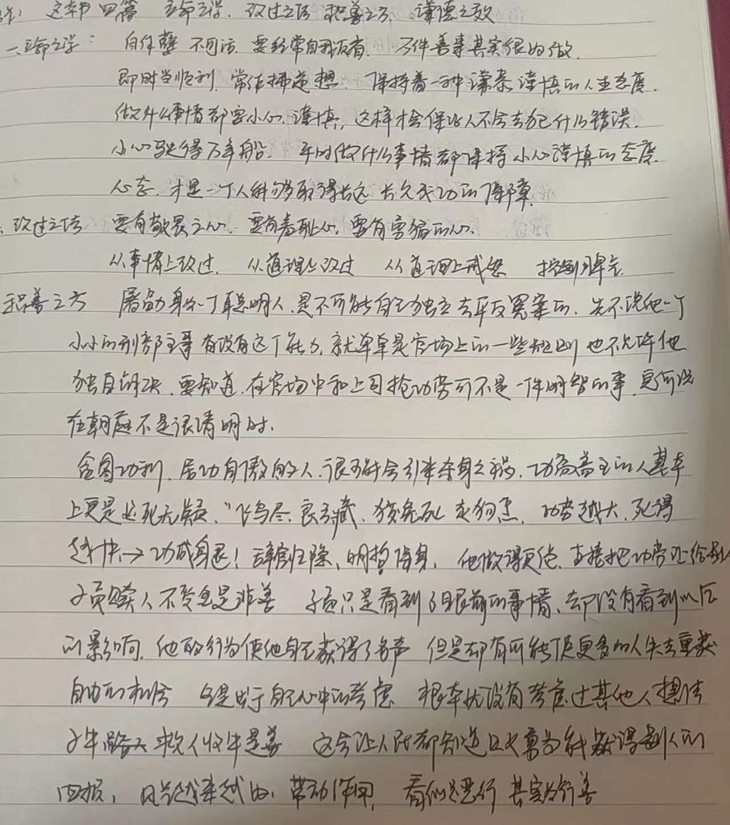 这部四篇 立命之学、改过之法 积善之方 谦德之效
一、立命之学: 自作孽 不可活 要经常自我反省. 万件善事其实很好做.
即时当顺利 常作拂逆想. 保持着一种谦虚谨慎的人生态度.
做什么事情都要小心谨慎, 这样才会保证人不会去犯什么错误.
小心驶得万年船. 平时做什么事情都保持小心谨慎的态度
心态, 才是一个人能够取得长远 长久成功的保障.
改过之法 要有敬畏之心. 要有羞耻心, 要有勇猛的心.
从事情上改过 从道理上改过 从道理上戒
积善之方 屠勋身为一丁聪明人, 是不可能自己独立去平反冤案的. 先不说他一个
小小的刑部主事有没有这个能力, 就单单是官场上的一些规则 也不允许他
独自解决. 要知道 在官场中和上司抢功劳可不是一件明智的事, 更何况
在朝廷不是很清明时.
贪图功利, 居功自傲的人, 很可能会引来杀身之祸, 功高盖主的人基本
上更是必死无疑, "飞鸟尽, 良弓藏, 狡兔死, 走狗烹, 功劳越大, 死得
越快→功成身退! 明哲保身, 他做得更绝, 直接把功劳还给别人
子贡赎人不受金是非善 子贡只是看到了眼前的事情, 却没有看到以后
的影响, 他的行为使他自己获得了名声 但是却有可能使更多的人失去重获
自由的机会 只是出于自己心中的考虑 根本就没有考虑过其他人想法
子牛 救人收牛是善 这会让人民都知道见义勇为能获得别人的
回报, 风气越来越好, 带动作用, 看似是恶行 其实的行善